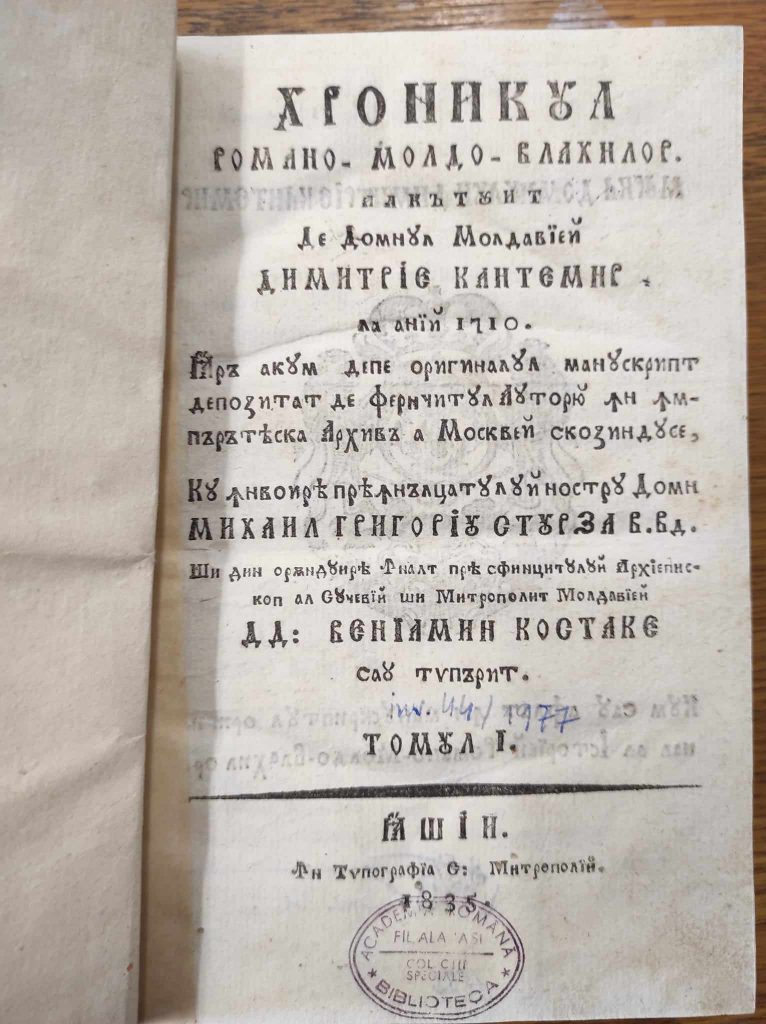 ХРОНИКꙋЛ
РОМАНО- МОЛДО- ВЛАХИЛОР.
АЛКЪТꙋИТ
Де Домнꙋл Молдавїей
ДИМИТРІЕ КАНТЕМИР.
ла анїй 1710.
Ꙗръ акꙋм депе оригиналꙋл манꙋскрипт
депозитат де феричитꙋл Аꙋторю̆ ꙟн ꙟм-
пърътѣска Архивъ а Москвей скозиндꙋсе,
Кꙋ ꙟнвоирѣ прѣꙟнълцатꙋлꙋй нострꙋ Домн
МИХАИЛ ГРИГОРІꙋ СТꙋРЗА В.Вд.
Ши дин орѫндꙋирѣ Ꙟналт прѣ сфинцитꙋлꙋй Архїепис-
коп ал Сꙋчевїй ши Митрополит Молдавїей
Д Д: ВЕНІАМИН КОСТАКЕ
саꙋ тѵпърит.
inv. 44/1977
ТОМꙋЛ І.
ꙖШІИ.
Ꙟн Тѵпографїа С: Митрополїй.
1835.
ACADEMIA ROMÂNĂ
FILIALA IAȘI
COLECȚII
SPECIALE
BIBLIOTECA